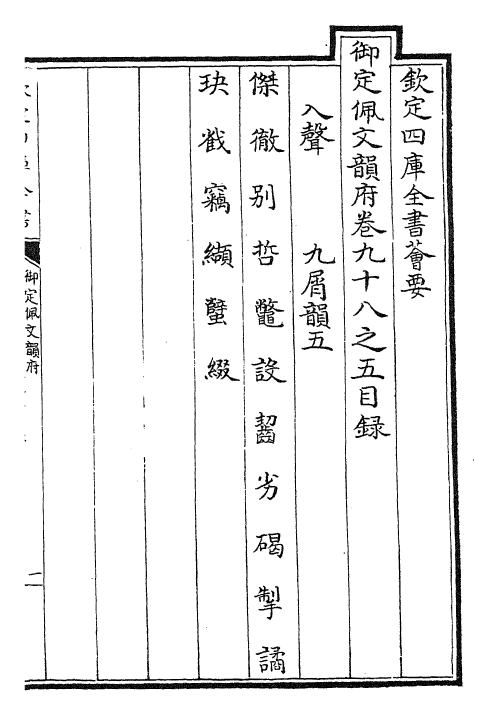 欽定四庫全書薈要
御定佩文韻府卷九十八之五目録
入聲 九屑韻五
傑徹别哲鼈設齧劣碣掣譎
玦截竊纈蠥綴
御定佩文韻府